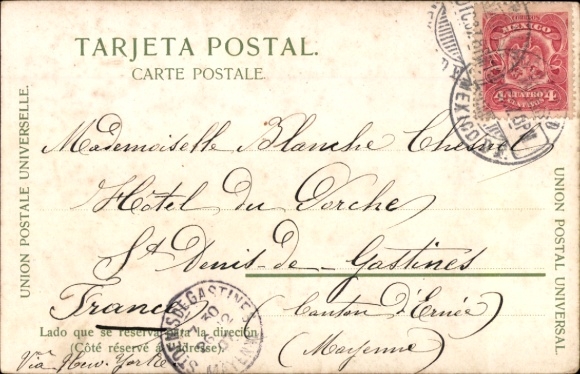 TARJETA POSTAL.
CARTE POSTALE.
CORREOS
MEXICO
4 CUATRO 4
CENTAVOS
UNION POSTALE UNIVERSELLE.
UNION POSTAL UNIVERSAL
Mademoiselle Blanche Chesnel
Hôtel du Porche
St Denis-de-Gastines
France (Canton d'Ernée)
(Mayenne)
Lado que se reserva para la direción
(Côté réservé à l'adresse).
Via New-York
ST DENIS DE GASTINES
30
MAYENNE